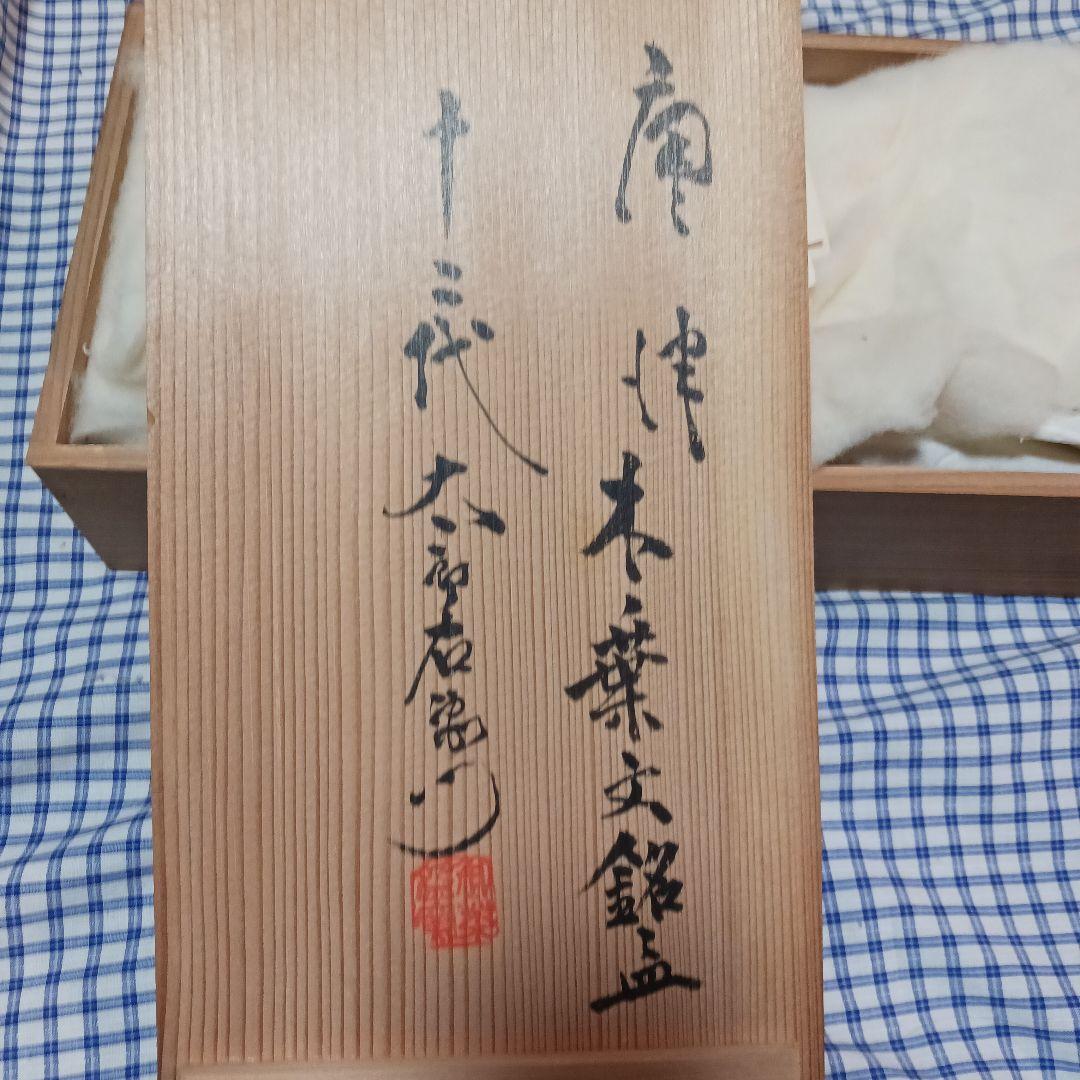 唐津木葉文銘皿
十三代太郎右衛門